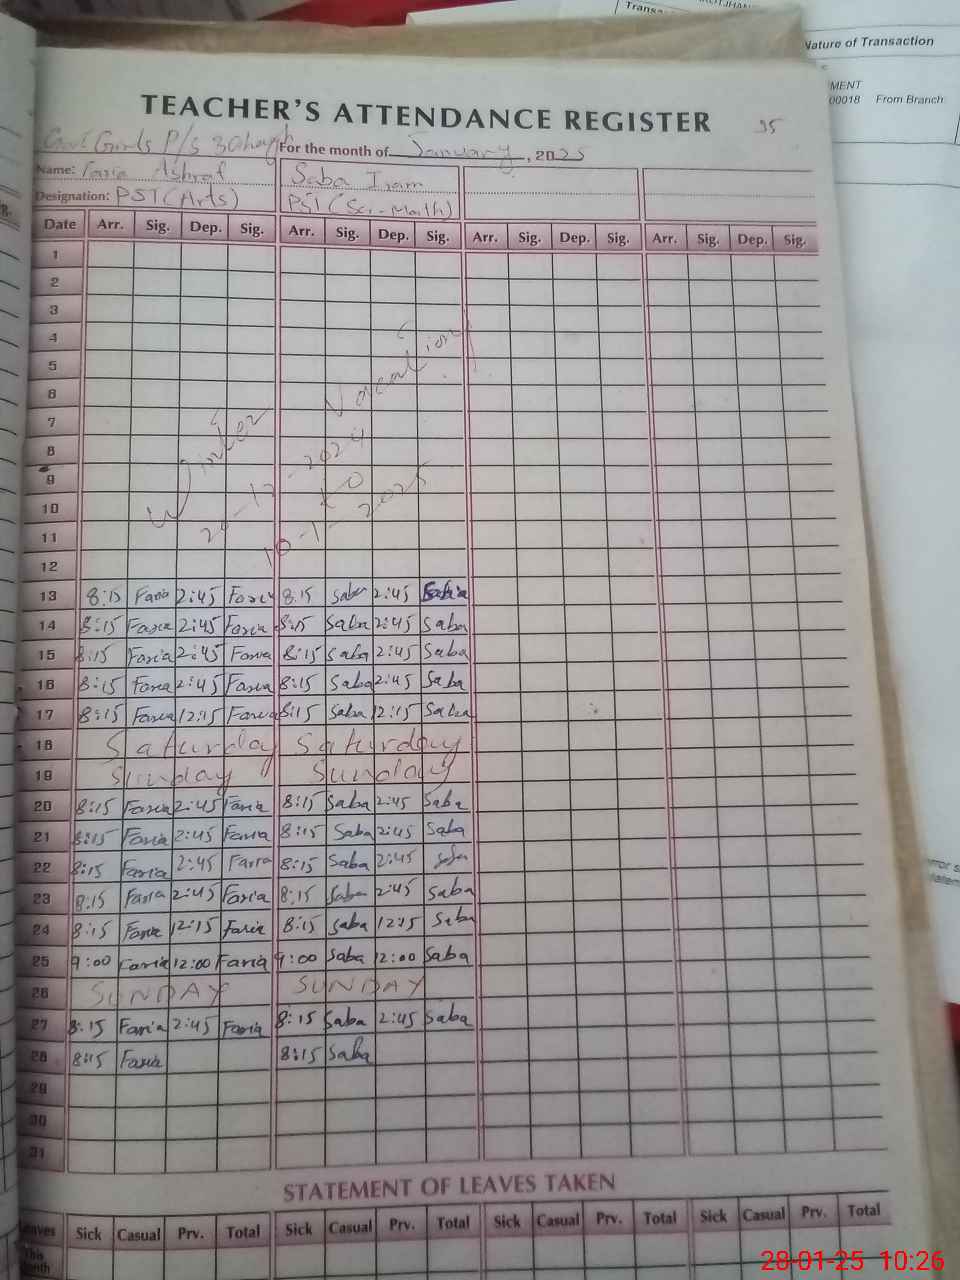 Transac
Nature of Transaction
MENT
00018 From Branch
TEACHER'S ATTENDANCE REGISTER
35
Govt Girls P/S
For the month of January, 2025
Name: Faria Ashraf Saba Iram
Designation: PST (Arts) PST (Sci-Math)
Date Arr. Sig. Dep. Sig. Arr. Sig. Dep. Sig. Arr. Sig. Dep. Sig. Arr. Sig. Dep. Sig.
1
2
3
4
5
6
7
8
9
10
11
12
Winter Vacation
-2024
to
10-1-2025
13 8:15 Faria 2:45 Faria 8:15 Saba 2:45 Saba
14 8:15 Faria 2:45 Faria 8:15 Saba 2:45 Saba
15 8:15 Faria 2:45 Faria 8:15 Saba 2:45 Saba
16 8:15 Faria 2:45 Faria 8:15 Saba 2:45 Saba
17 8:15 Faria 12:15 Faria 8:15 Saba 12:15 Saba
18 Saturday Saturday
19 Sunday Sunday
20 8:15 Faria 2:45 Faria 8:15 Saba 2:45 Saba
21 8:15 Faria 2:45 Faria 8:15 Saba 2:45 Saba
22 8:15 Faria 2:45 Faria 8:15 Saba 2:45 Saba
23 8:15 Faria 2:45 Faria 8:15 Saba 2:45 Saba
24 8:15 Faria 12:15 Faria 8:15 Saba 12:15 Saba
25 9:00 Faria 12:00 Faria 9:00 Saba 12:00 Saba
26 SUNDAY SUNDAY
27 8:15 Faria 2:45 Faria 8:15 Saba 2:45 Saba
28 8:15 Faria 8:15 Saba
29
30
31
STATEMENT OF LEAVES TAKEN
Leaves Sick Casual Prv. Total Sick Casual Prv. Total Sick Casual Prv. Total Sick Casual Prv. Total
This
Month
28-01-25 10:26